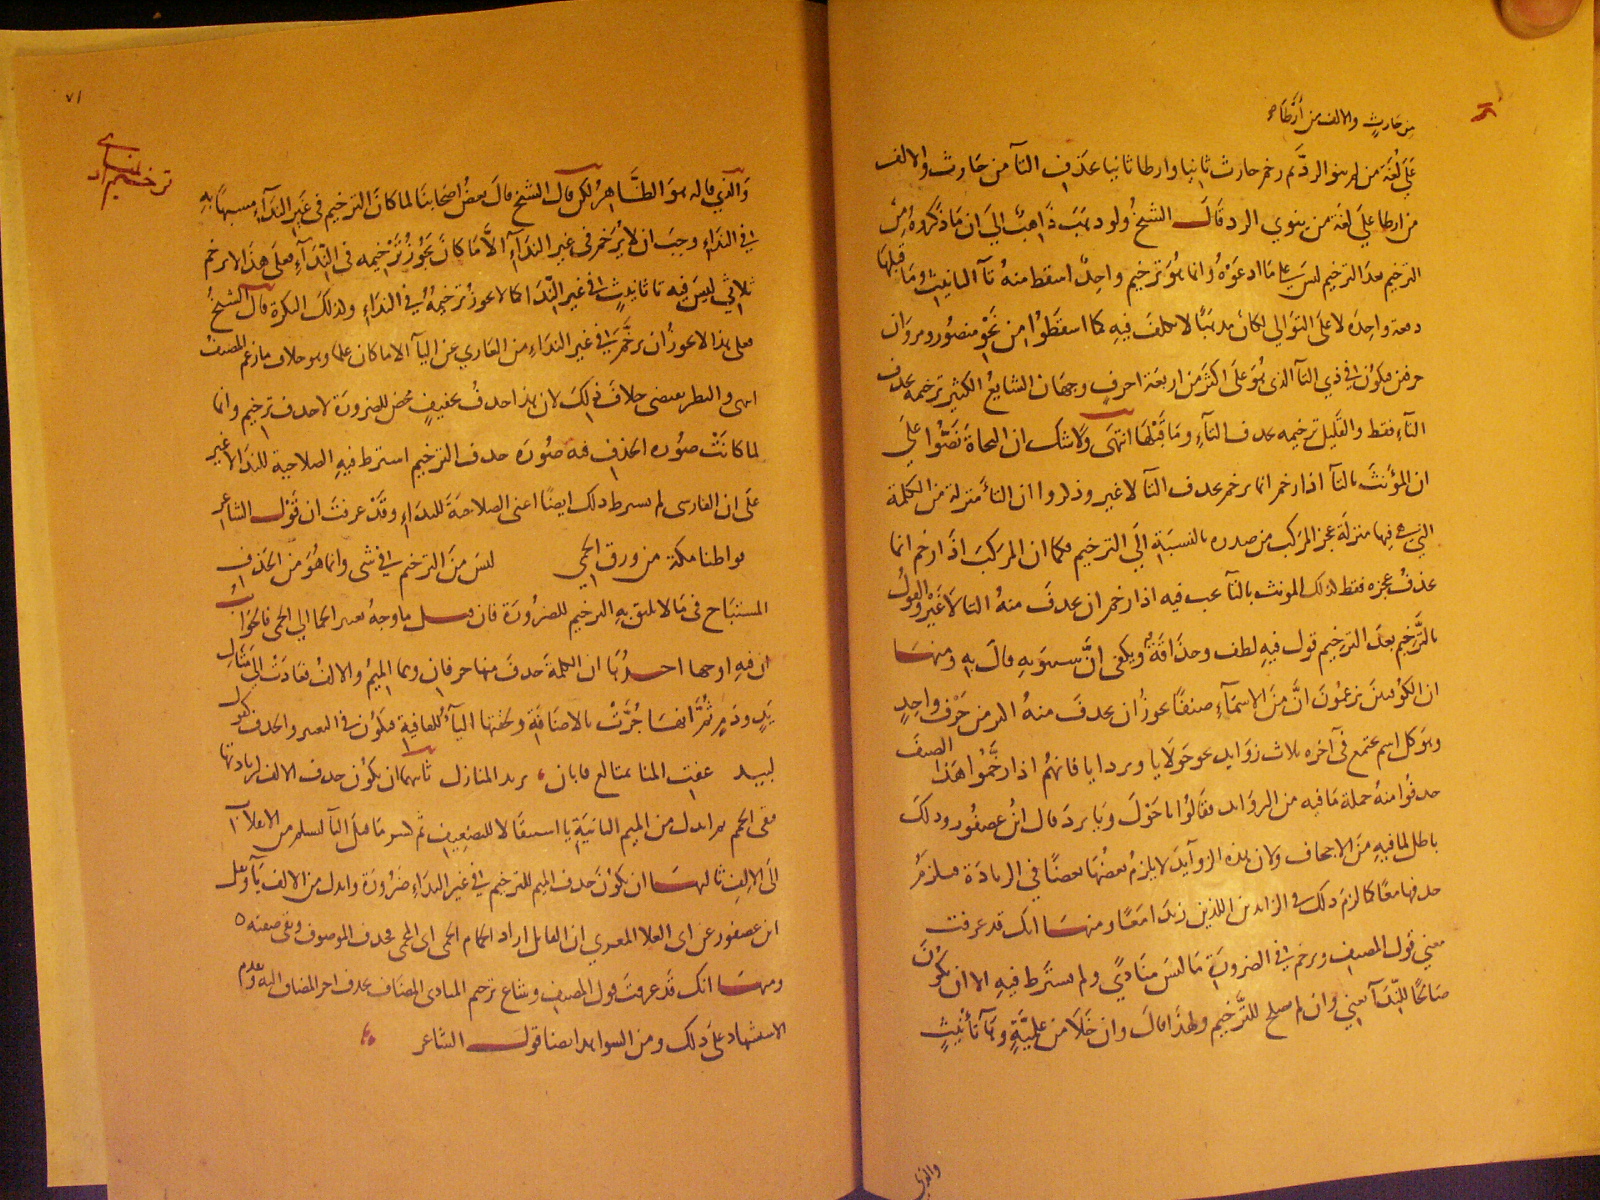 من حارث والالف من أرطاه
على لغة من لم ينو الرد ثم رخم حارث ثانيا وارطا ثانيا بحذف التآ من حارث والالف
من ارطا على لغة من ينوي الرد قال الشيخ ولو ذهب ذاهب الى ان ما ذكروه من
الترخيم بعد الترخيم ليس على ما ادعوه وانما هو ترخيم واحد اسقط منه تآ التانيث وما قبلها
دفعة واحدة لا على التوالي لكان مذهبا لا تكلف فيه كما اسقطوا من نحو منصور ومروان
حرفين فيكون في ذي التآ الذي هو على اكثر من اربعة احرف وجهان الشايع الكثير ترخيمه بحذف
التآء فقط والقليل ترخيمه بحذف التآء وما قبلها انتهى ولا شك ان النحاة نصوا على
ان المؤنث بالتآ اذا رخم انما يرخم بحذف التآ لا غير وذكروا ان التآ منزلة من الكلمة
التي هي فيها منزلة عجز المركب من صدره بالنسبة الى الترخيم فكما ان المركب اذا رخم انما
يحذف عجزه فقط لذلك المونث بالتآ يجب فيه اذا رخم ان يحذف منه التا لا غير والقول
بالترخيم بعد الترخيم قول فيه لطف وحذاقة ويكفي ان سيبويه قال به ومنها
ان الكوفيين يزعمون ان من الاسمآء صنفا يجوز ان يحذف منه اكثر من حرف واحد
وهو كل اسم يجتمع في آخره ثلاث زوايد نحو حولايا وبردايا فانهم اذا رخموا هذا الصنف
حذفوا منه جملة ما فيه من الزوايد فقالوا يا حول ويا برد قال ابن عصفور وذلك
باطل لما فيه من الاجحاف ولان هذه الزوآيد لا يلزم بعضها بعضا في الزيادة فيلزم
حذفها معا كما لزم ذلك في الزايدين اللذين زيدا معا ومنها انك قد عرفت
معنى قول المصنف ويرخم في الضرورة ما ليس منادى ولم يشترط فيه الا ان يكون
صالحا للندآ يعني وان لم يصلح للترخيم ولهذا قال وان خلا من علمية وهآ تأنيث
والذي
٧١
ترخيم المنادى
والذي قاله هو الظاهر لكن قال الشيخ قال بعض اصحابنا لما كان الترخيم في غير الندآء مشبها به
في الندآء وجب ان لا يرخم في غير الندآء الا ما كان يجوز ترخيمه في الندآء فعلى هذا لا يرخم
ثلاثي ليس فيه تا تانيث في غير الندا كما لا يجوز ترخيمه في الندآء ولذلك النكرة قال الشيخ
فعلى هذا لا يجوز ان يرخم في غير الندآء من العاري عن التآ الا ما كان علما وهو خلاف ما زعم المصنف
انتهى والنظر يقتضي خلاف ذلك لان هذا حذف تخفيف محض للضرورة لا حذف ترخيم وانما
لما كانت صورة الحذف فيه صورة حذف الترخيم اشترط فيه الصلاحية للندآ لا غير
على ان الفارسي لم يشرط ذلك ايضا اعني الصلاحية للندآء وقد عرفت ان قول الشاعر
قواطنا مكة من ورق الحمي ليس من الترخيم في شي وانما هو من الحذف
المستباح في ما لا يليق به الترخيم للضرورة فان قيل ما وجه تغيير الحما الى الحمي فالجواب
ان فيه اوجها احدها ان الكلمة حذف منها حرفان وهما الميم والالف فعادت الى مثال
يد ودم ثم انها جرت بالاضافة ولحقتها اليآ للقافية فيكون في التغيير والحذف كقول
لبيد عفت المنا بمتالع فابان، يريد المنازل ثانيها ان يكون حذف الالف لزيادتها
فبقي الحمم ثم ابدل من الميم الثانية يا استثقالا للتضعيف ثم كسر ما قبل اليآ لتسلم من الانقلاب
الى الالف ثالثها ان يكون حذف الميم للترخيم في غير الندآء ضرورة وابدل من الالف يآ ونقل
ابن عصفور عن ابي العلا المعري ان القايل اراد الحمام الحمي اي المحمي فحذف الموصوف وبقي صفته
ومنها انك قد عرفت قول المصنف وشاع ترخيم المنادى المضاف بحذف اخر المضاف اليه وتقدم
الاستشهاد على ذلك ومن الشواهد ايضا قول الشاعر